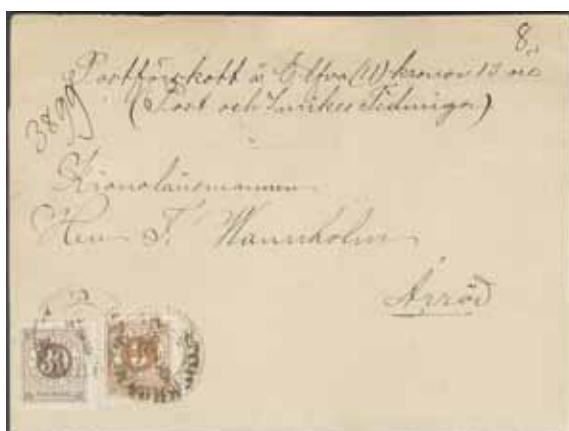 8.
Postförskott å Elfva (11) kronor 15 öre
(Post och Inrikes Tidningar)
3899
Kronolänsmannen
Herr F. Wannholm
Arröd